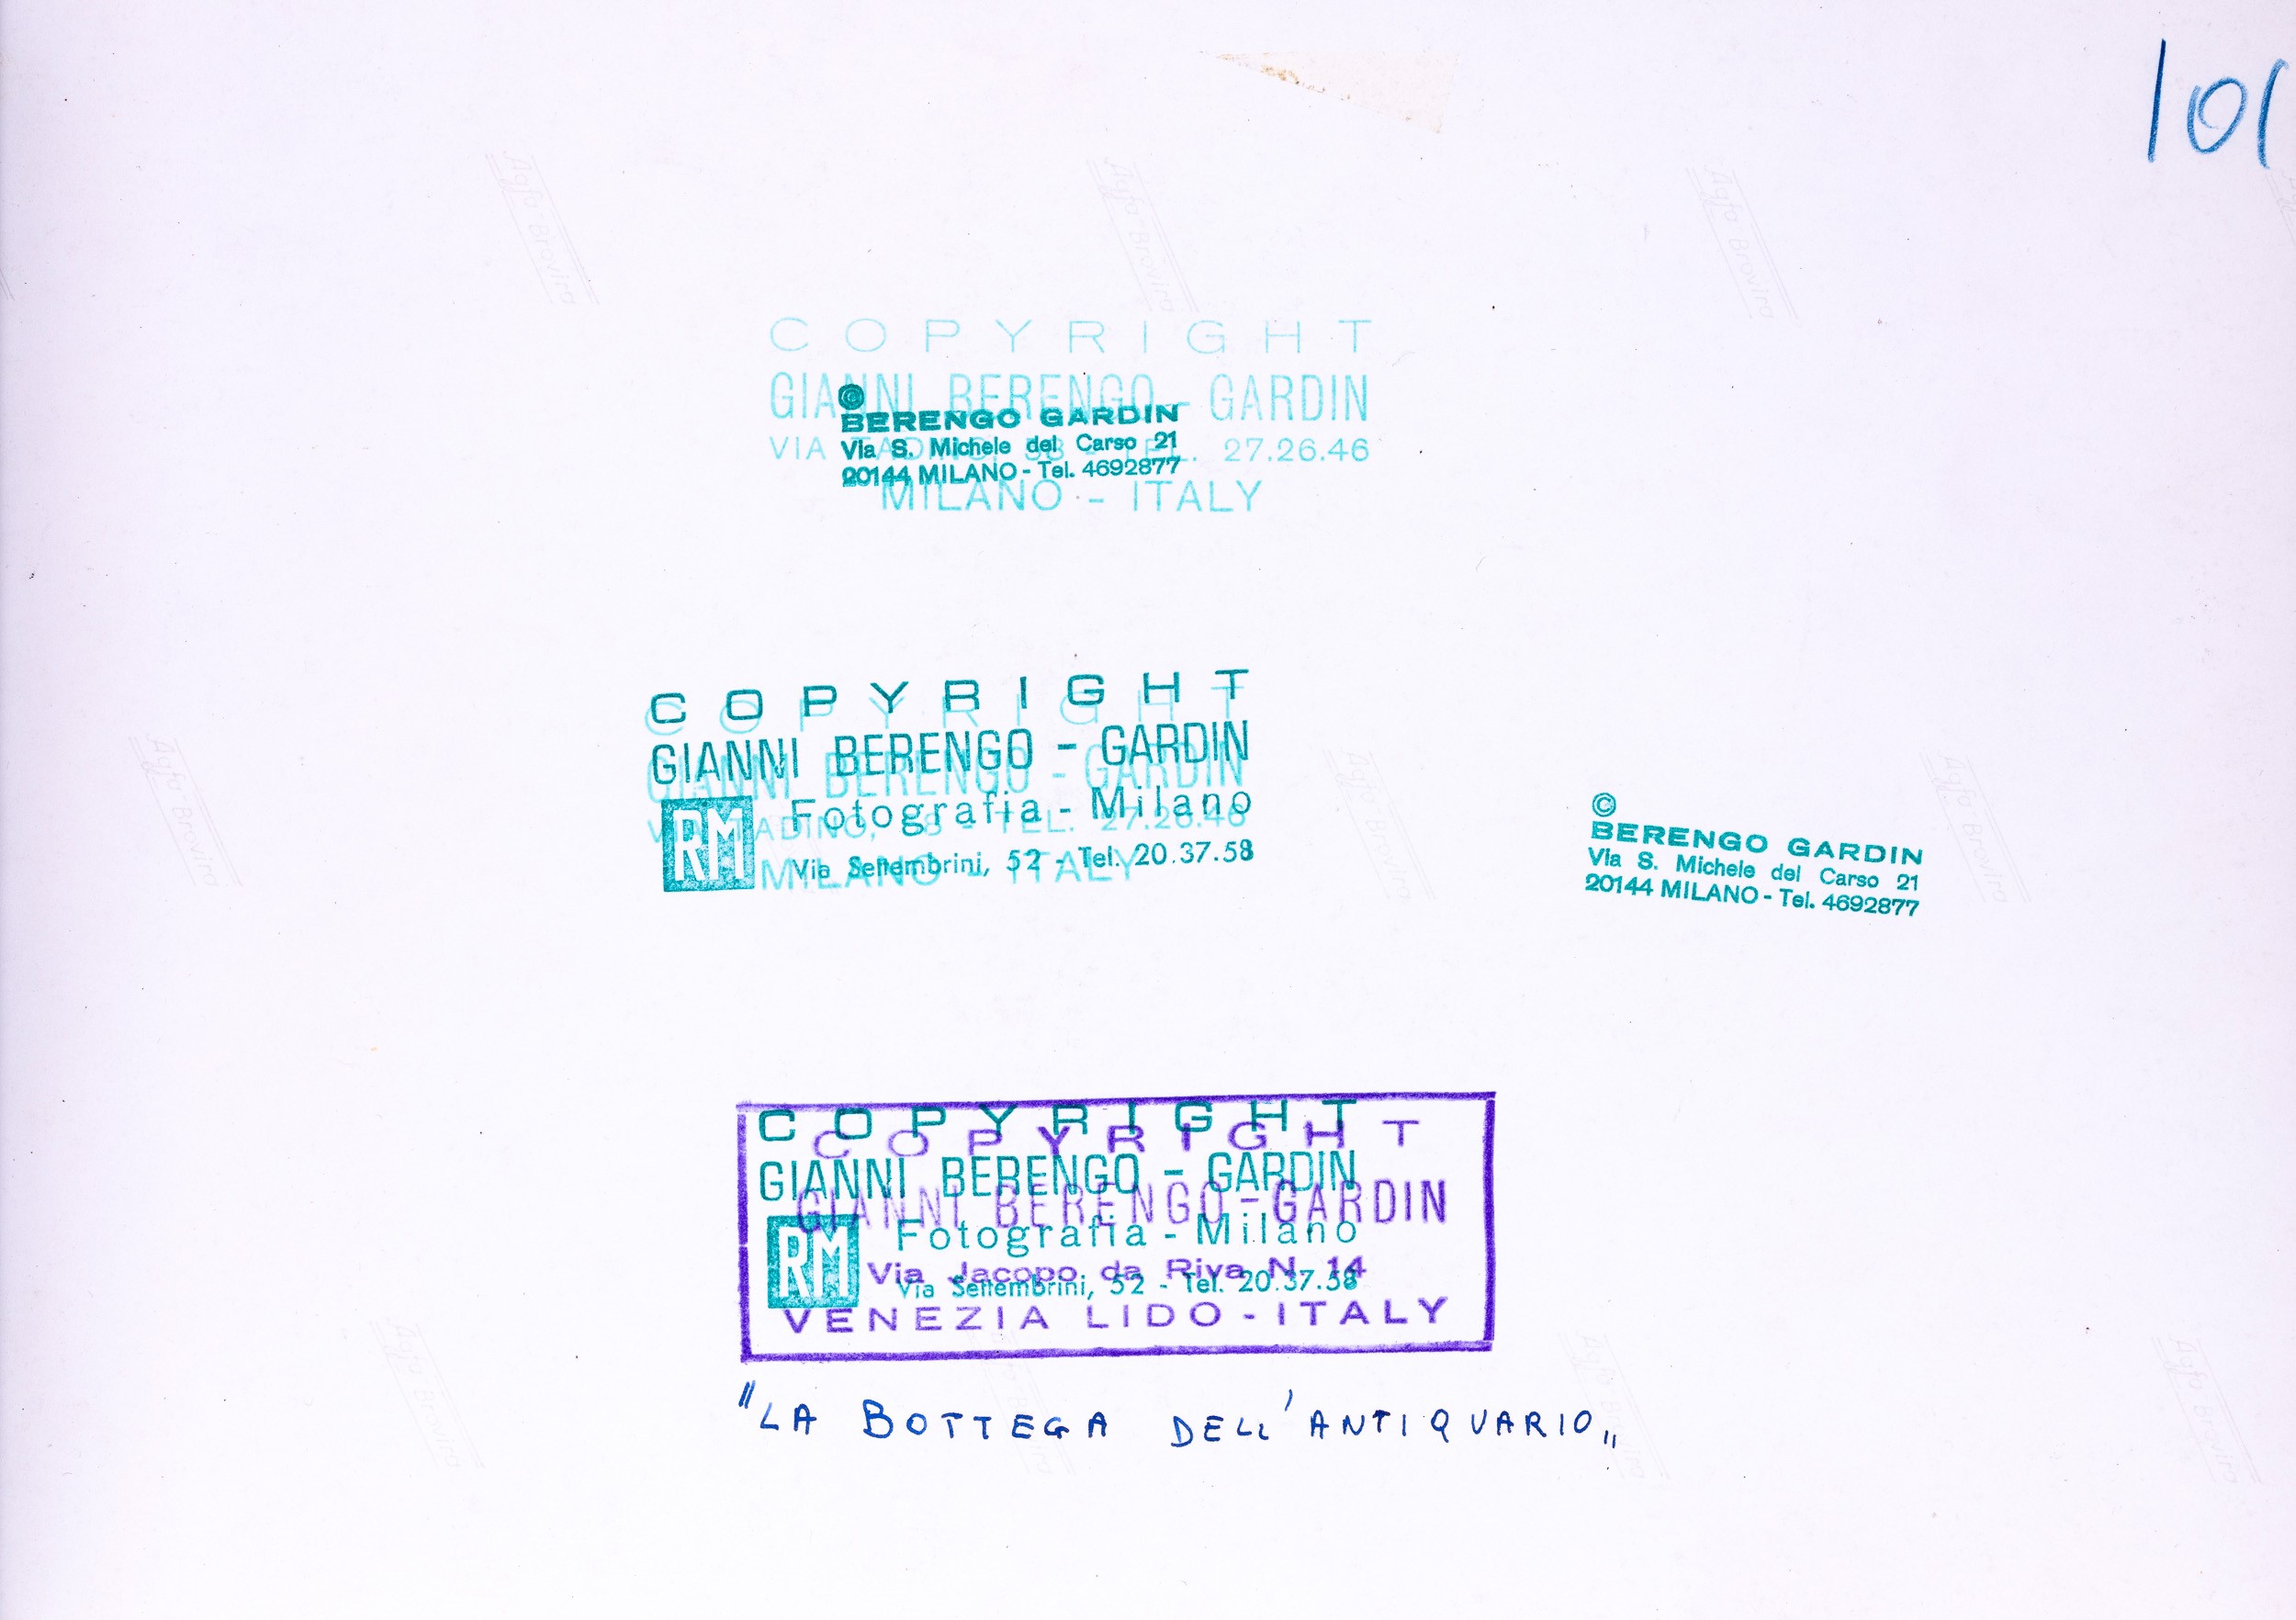 101
Agfa-Brovira
Agfa-Brovira
Agfa-Brovira
COPYRIGHT
GIANNI BERENGO - GARDIN
VIA TADINO, 58 - TEL. 27.26.46
MILANO - ITALY
©
BERENGO GARDIN
Via S. Michele del Carso 21
20144 MILANO - Tel. 4692877
COPYRIGHT
GIANNI BERENGO - GARDIN
RM Fotografia - Milano
Via Settembrini, 52 - Tel. 20.37.58
COPYRIGHT
GIANNI BERENGO - GARDIN
VIA TADINO, 58 - TEL. 27.26.46
MILANO - ITALY
Agfa-Brovira
Agfa-Brovira
Agfa-Brovira
©
BERENGO GARDIN
Via S. Michele del Carso 21
20144 MILANO - Tel. 4692877
COPYRIGHT
GIANNI BERENGO - GARDIN
RM Fotografia - Milano
Via Settembrini, 52 - Tel. 20.37.58
COPYRIGHT
GIANNI BERENGO - GARDIN
Via Jacopo da Riva N. 14
VENEZIA LIDO - ITALY
"LA BOTTEGA DELL'ANTIQUARIO„
Agfa-Brovira
Agfa-Brovira
Agfa-Brovira